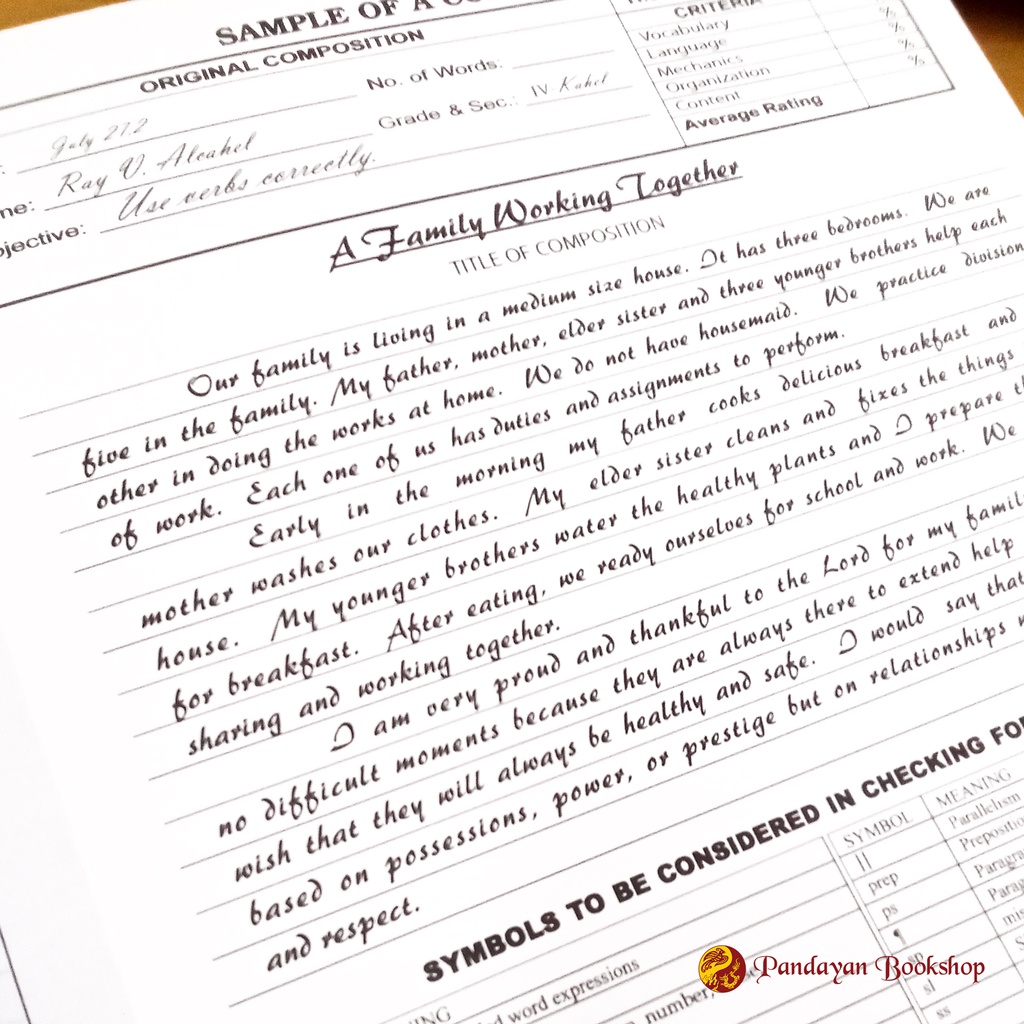 SAMPLE OF A
ORIGINAL COMPOSITION
No. of Words:
Grade & Sec.: IV-Kahel
July 212
Ray V. Alcahel
Use verbs correctly.
CRITERIA
Vocabulary %
Language %
Mechanics %
Organization %
Content
Average Rating
A Family Working Together
TITLE OF COMPOSITION
Our family is living in a medium size house. It has three bedrooms. We are
five in the family. My father, mother, elder sister and three younger brothers help each
other in doing the works at home. We do not have housemaid. We practice division
of work. Each one of us has duties and assignments to perform.
Early in the morning my father cooks delicious breakfast and
mother washes our clothes. My elder sister cleans and fixes the things
house. My younger brothers water the healthy plants and I prepare
for breakfast. After eating, we ready ourselves for school and work. We
sharing and working together.
I am very proud and thankful to the Lord for my
no difficult moments because they are always there to extend help
wish that they will always be healthy and safe. I would say that
based on possessions, power, or prestige but on relationships
and respect.
SYMBOLS TO BE CONSIDERED IN CHECKING
SYMBOL MEANING
|| Parallelism
prep
ps
¶
sp
sl
ss
word expressions
number,
Pandayan Bookshop